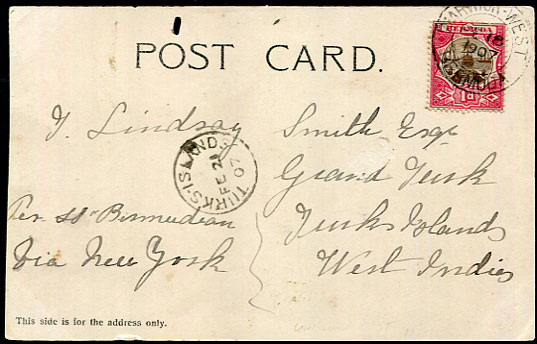 POST CARD.
BERMUDA
1d
WARWICK-WEST
FE 18
1907
BERMUDA
J. Lindsay Smith Esqr
TURKS-ISLANDS
FE 21
07
Grand Turk
Per SS Bermudian
Turks Islands
Via New York
West Indies
This side is for the address only.